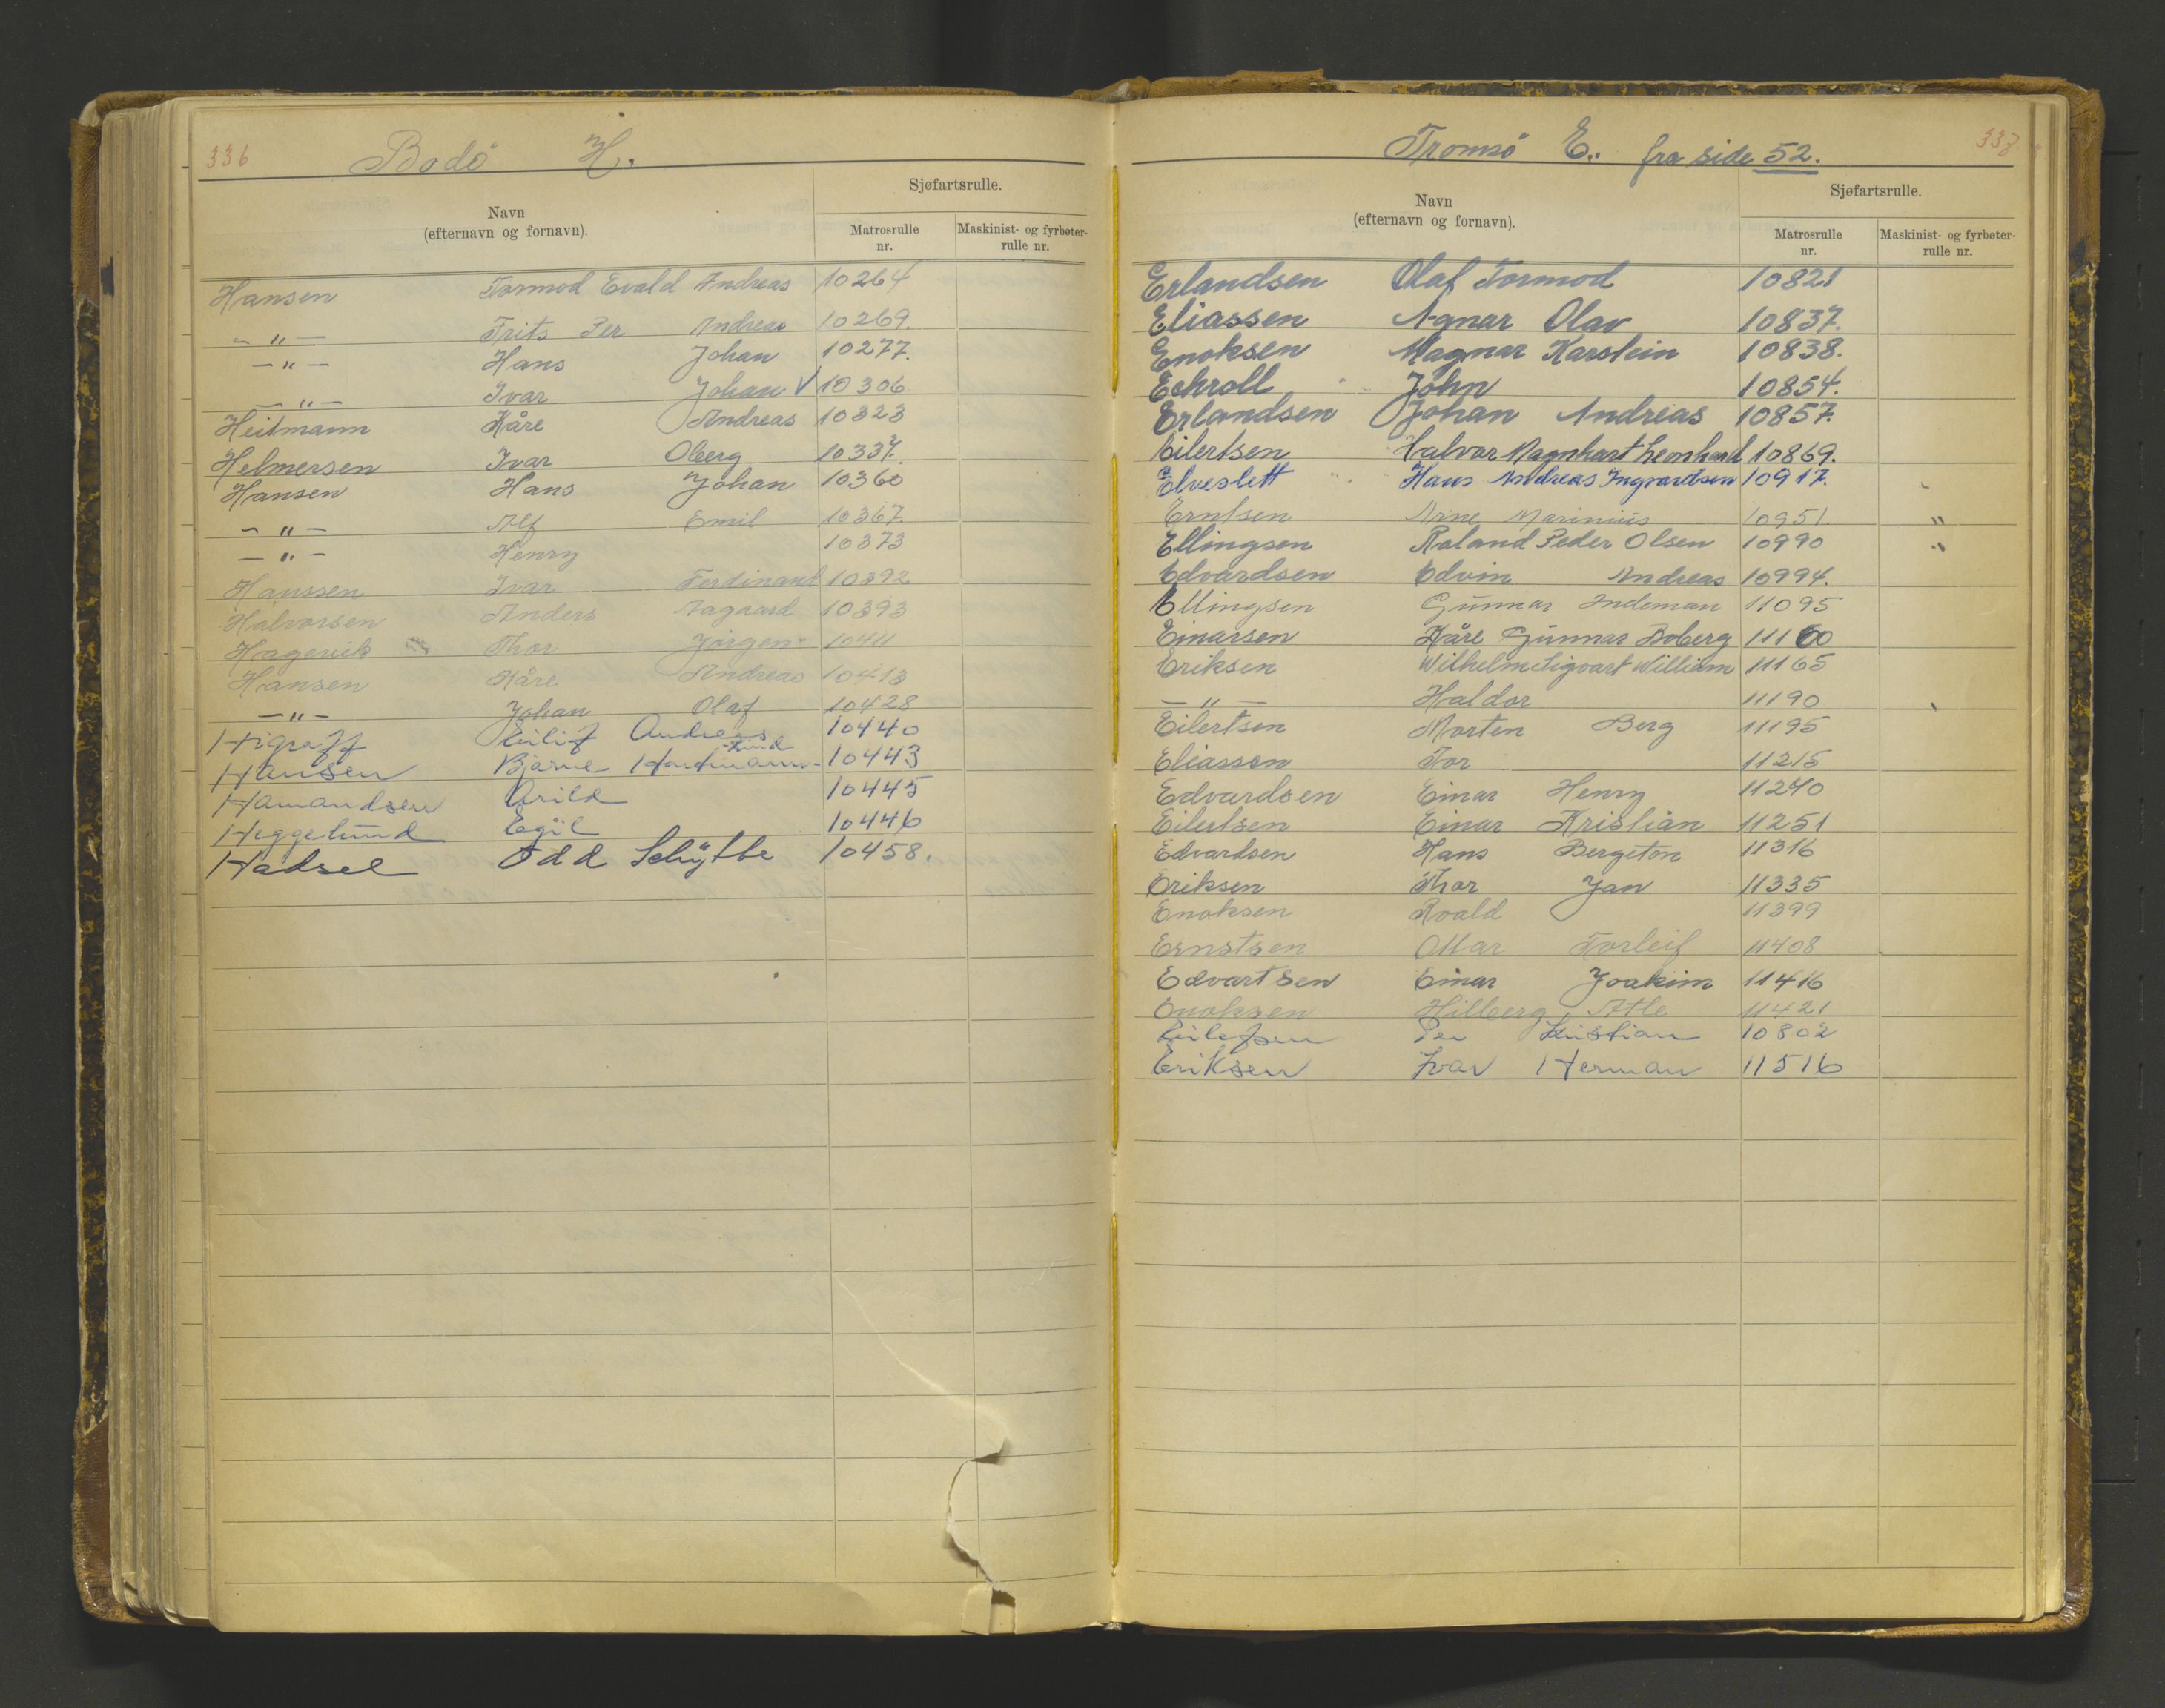 336 Bodö H.
Navn
(efternavn og fornavn).
Sjøfartsrulle.
Matrosrulle
nr.
Maskinist- og fyrbøter-
rulle nr.
Hansen Tormod Evald Andreas 10264
- " - Frits Per Andreas 10269.
- " - Hans Johan 10277.
- " - Ivar Johan √ 10306.
Heitmann Kåre Andreas 10323
Helmersen Ivar Oberg 10337.
Hansen Hans Johan 10360
- " - Alf Emil 10367.
- " - Henry 10373
Hanssen Ivar Ferdinand 10392
Halvorsen Anders Aagaard 10393
Hagevik Thor Jørgen 10411
Hansen Kåre Andreas 10413
- " - Johan Olaf 10428
Higraff Eilif Andreas 10440
Hansen Bjarne Hartmann 10443
Hamandsen Arild 10445
Heggelund Egil 10446
Hadsel Odd Schytte 10458.
Tromsö E. fra side 52. 337.
Navn
(efternavn og fornavn).
Sjøfartsrulle.
Matrosrulle
nr.
Maskinist- og fyrbøter-
rulle nr.
Erlandsen Olaf Tormod 10821
Eliassen Agnar Olav 10837.
Enoksen Magnar Karstein 10838.
Eckroll John 10854.
Erlandsen Johan Andreas 10857.
Eilertsen Halvor Magnhart Leonhard 10869.
Elveslett Hans Andreas Ingvardtsen 10917.
Erntsen Arne Marinius 10951. "
Ellingsen Roland Peder Olsen 10990 "
Edvardsen Edvin Andreas 10994.
Ellingsen Gunnar Indeman 11095
Einarsen Kåre Gunnar Boberg 11160
Eriksen Wilhelm Sigvart William 11165
- " - Haldor 11190
Eilertsen Morten Berg 11195
Eliassen Tor 11215
Edvardsen Einar Henry 11240
Eilertsen Einar Kristian 11251
Edvardsen Hans Bergeton 11316
Eriksen Thor Jan 11335
Enoksen Roald 11399
Ernstsen Ottar Torleif 11408
Edvartsen Einar Joakim 11416
Enoksen Hilberg Atle 11421
Eilefsen Per Kristian 10802
Eriksen Ivar Herman 11516